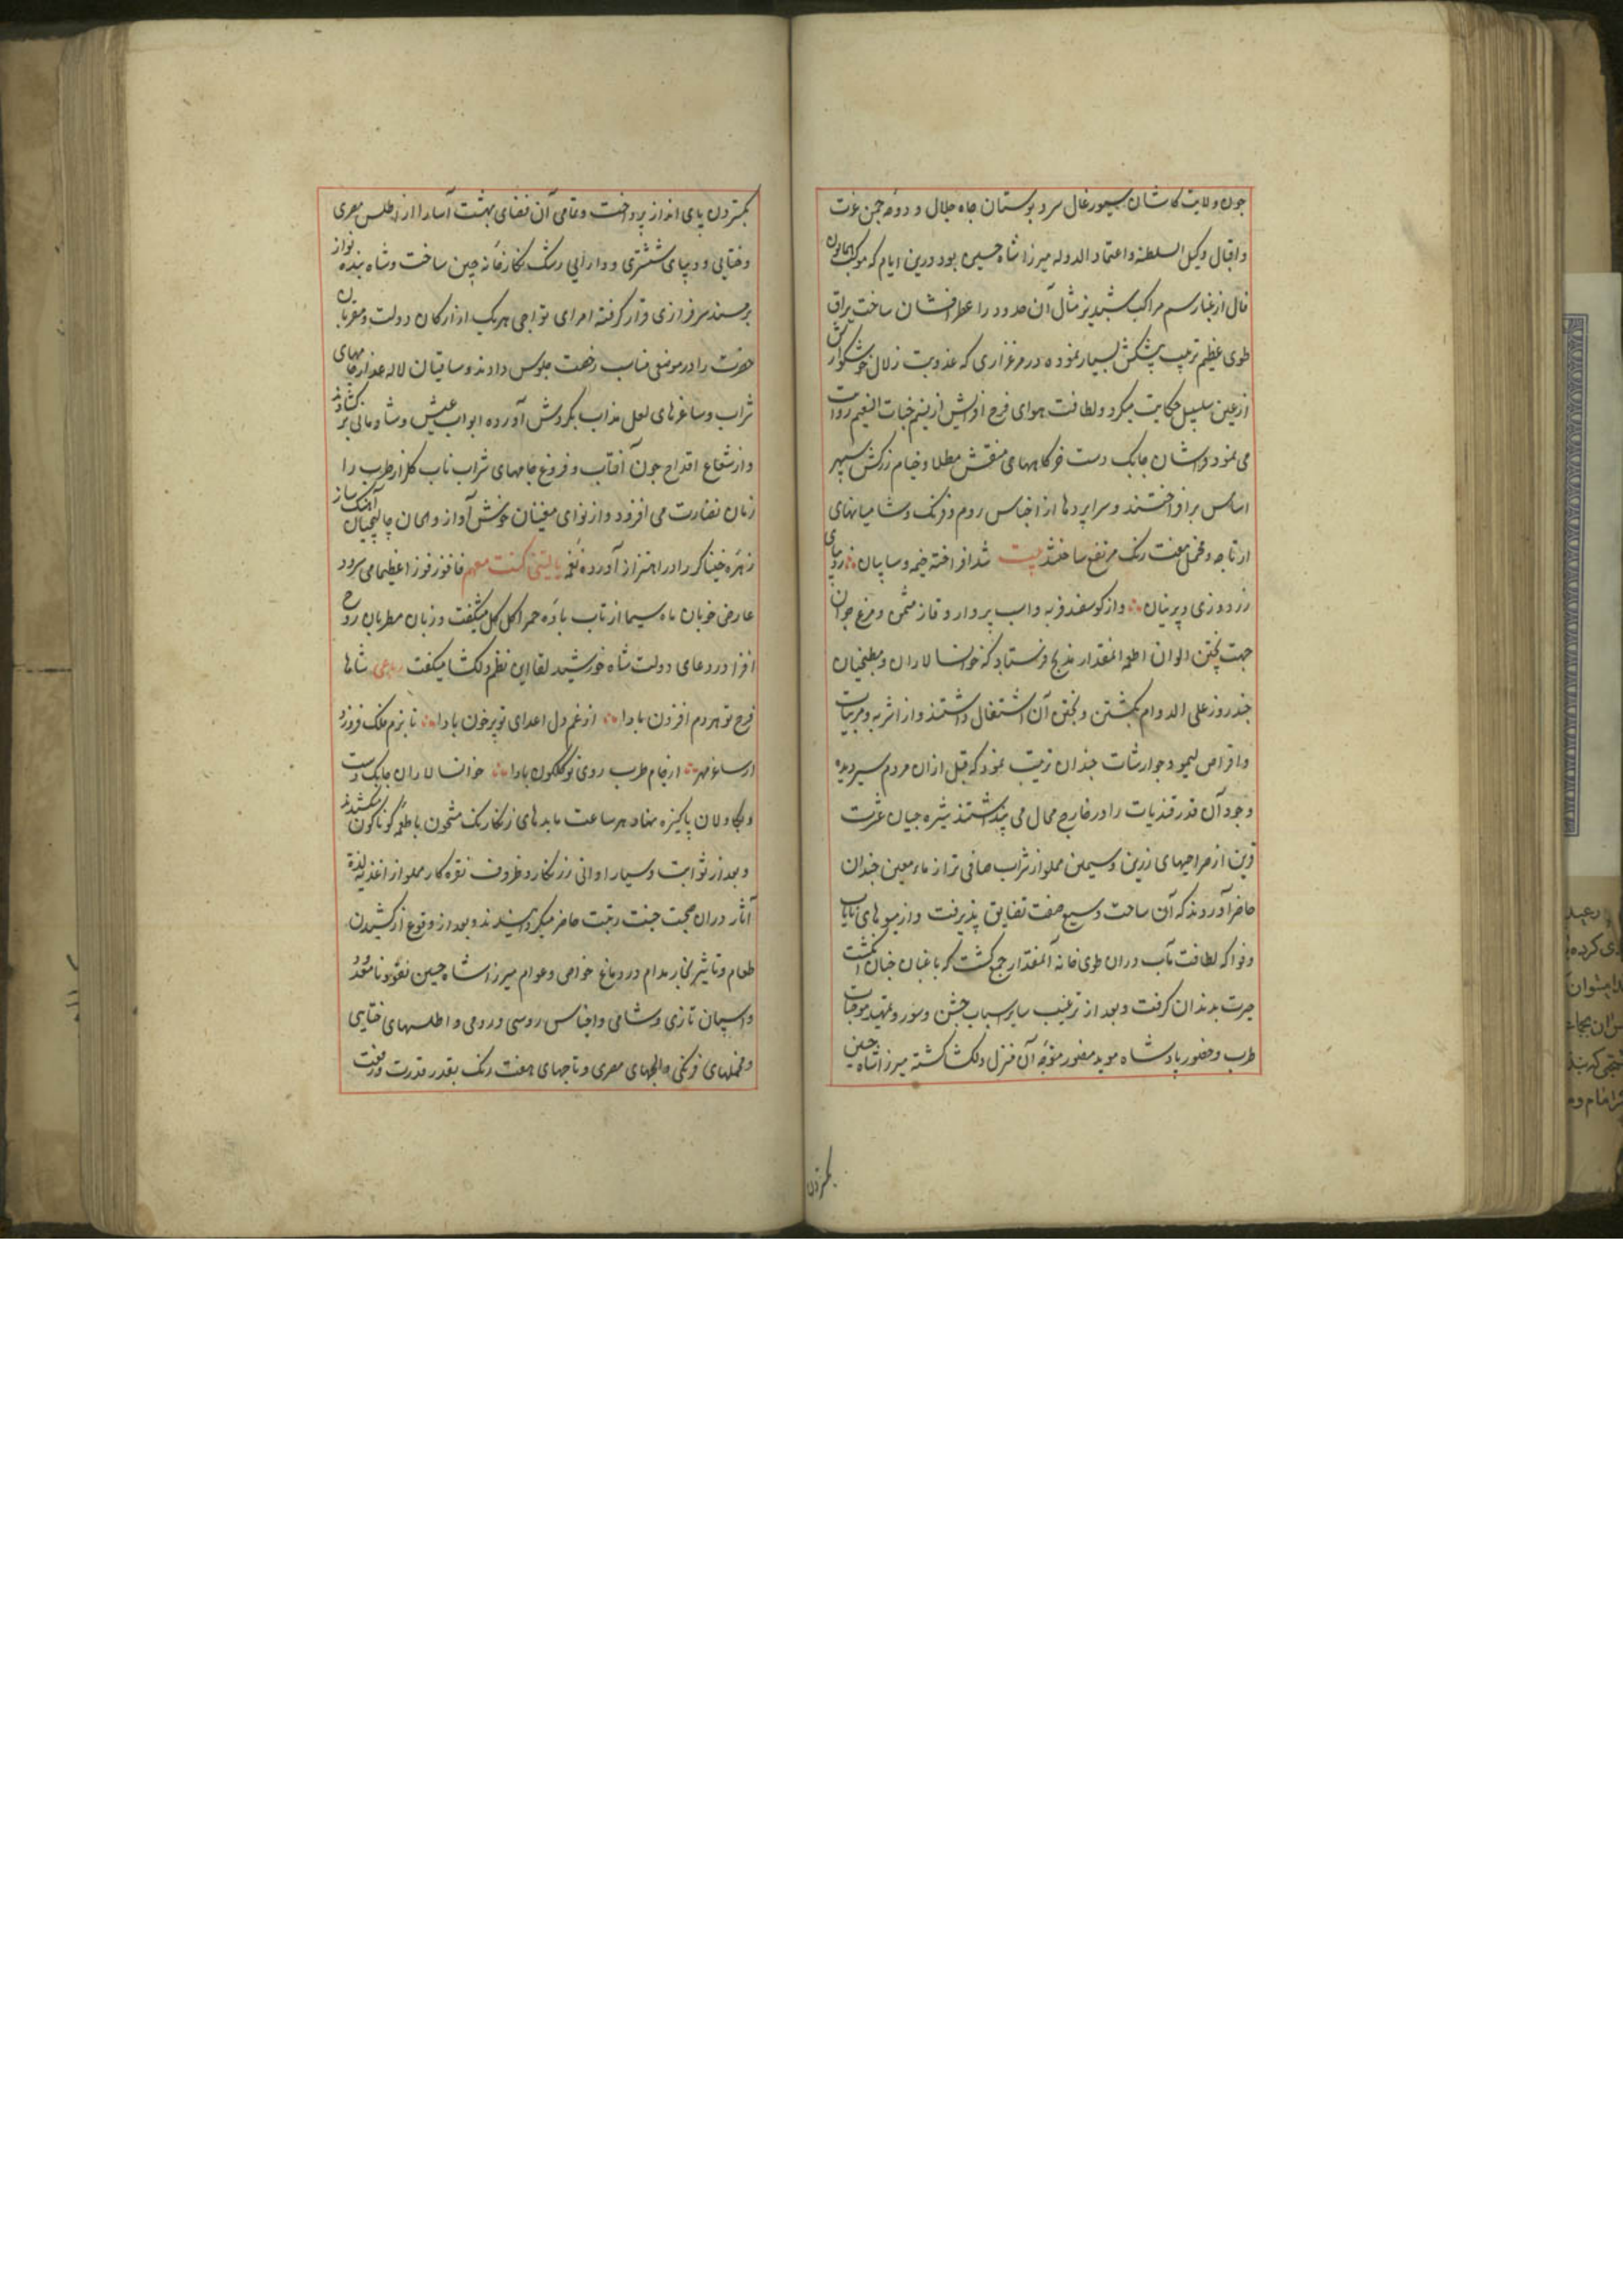 چون ولایت کاشان سیورغال سرو بوستان جاه جلال و دوحه چمن عزت
و اقبال وکیل السلطنه و اعتماد الدوله میرزا شاه حسین بود درین ایام که موکب همایون
فال از غبار سم مراکب شبدیز مثال آن حدود را عطرافشان ساخت یراق
طوی عظیم ترتیب پیشکش بسیار نموده در مرغزاری که عذوبت زلال خوشگوارش
از عین سلسبیل حکایت میکرد و لطافت هوای فرح افزایش از نسیم جنات النعیم روایت
می نمود فراشان چابک دست خرگاههای منقش مطلا و خیام زرکش سپهر
اساس برافراختند و سراپردها از اجناس روم و فرنگ و شامیانهای
از تاجه و مخمل هفت رنگ مرتفع ساختند بیت شد افراخته خیمه و سایبان ز دیبای
زردوزی و پرنیان و از کوسفند فربه و اسب پروار و قاز مثمن و مرغ جوان
جهت پختن الوان اطعمه آنمقدار بمذبح فرستاد که خوانسالاران و مطبخیان
چند روز علی الدوام بکشتن و پختن آن اشتغال داشتند و از اشربه و مربیات
و اقراص لیمو و جوارشات چندان ترتیب نمود که قبل ازان مردم سیردیده
وجود آن قدر قندیات را در خارج محال می پنداشتند شیره چیان عشرت
قرین از صراحیهای زرین و سیمین مملو از شراب صافی تر از ماء معین چندان
حاضر آوردند که آن ساحت وسیع صفت تضایق پذیرفت و از میوهای نایاب
و فواکه لطافت مآب دران طوی خانه آنمقدار جمع گشت که باغبان جنان انگشت
حیرت بدندان گرفت و بعد از ترتیب سایر اسباب جشن و سور و تمهید موجبات
طرب و حضور پادشاه موید منصور متوجه آن منزل دلگشا گشته میرزا شاه حسین
بگستردن
بگستردن پای انداز پرداخت و تمامی آن فضای بهشت آسا را از اطلس مصری
و ختایی و دیبای ششتری و دارایی رشک نگارخانه چین ساخت و شاه بنده نواز
بر مسند سرفرازی قرار گرفته امرای تواجی هر یک از ارکان دولت و مقربان
حضرت را در موضعی مناسب رخصت جلوس دادند و ساقیان لاله عذار جامهای
شراب و ساغرهای لعل مذاب بگردش آورده ابواب عیش و شادمانی برگشادند
و از شعاع اقداح چون آفتاب و فروغ جامهای شراب ناب گلزار طرب را
زمان زمان نضارت می افزود و از نوای مغنیان خوش آواز و الحان چالیچیان آهنگ ساز
زهره خنیاگر را در اهتزاز آورده نغمه یا لیتنی کنت معهم فافوز فوزا عظیما می سرود
عارض خوبان ماه سیما از تاب باده حمرا گل گل میشگفت و زبان مطربان روح
افزا در دعای دولت شاه خورشید لقا این نظم دلگشا میگفت رباعی شاها
فرح تو هر دم افزون بادا از غم دل اعدای تو پر خون بادا تا بزم فلک فروزد
از ساغر مهر از جام طرب روی تو گلگون بادا خوانسالاران چابک دست
و بکاولان پاکیزه نهاد هر ساعت مایدهای زنگارنگ مشحون باطعمه گوناگون میکشیدند
و بعد از ثوابت و سیار اوانی زرنگار و ظروف نقره کار مملو از اغذیه لذت
آثار دران صحبت جنت رتبت حاضر میگردانیدند و بعد از وقوع از کشیدن
طعام و تاثیر بخار مدام در دماغ خواص و عوام میرزا شاه حسین نقود نامعدود
و اسپان تازی و شامی و اجناس روسی و رومی و اطلسهای ختایی
و مخملهای فرنگی و الجهای مصری و تاجهای هفت رنگ بقدر قدرت و رفعت